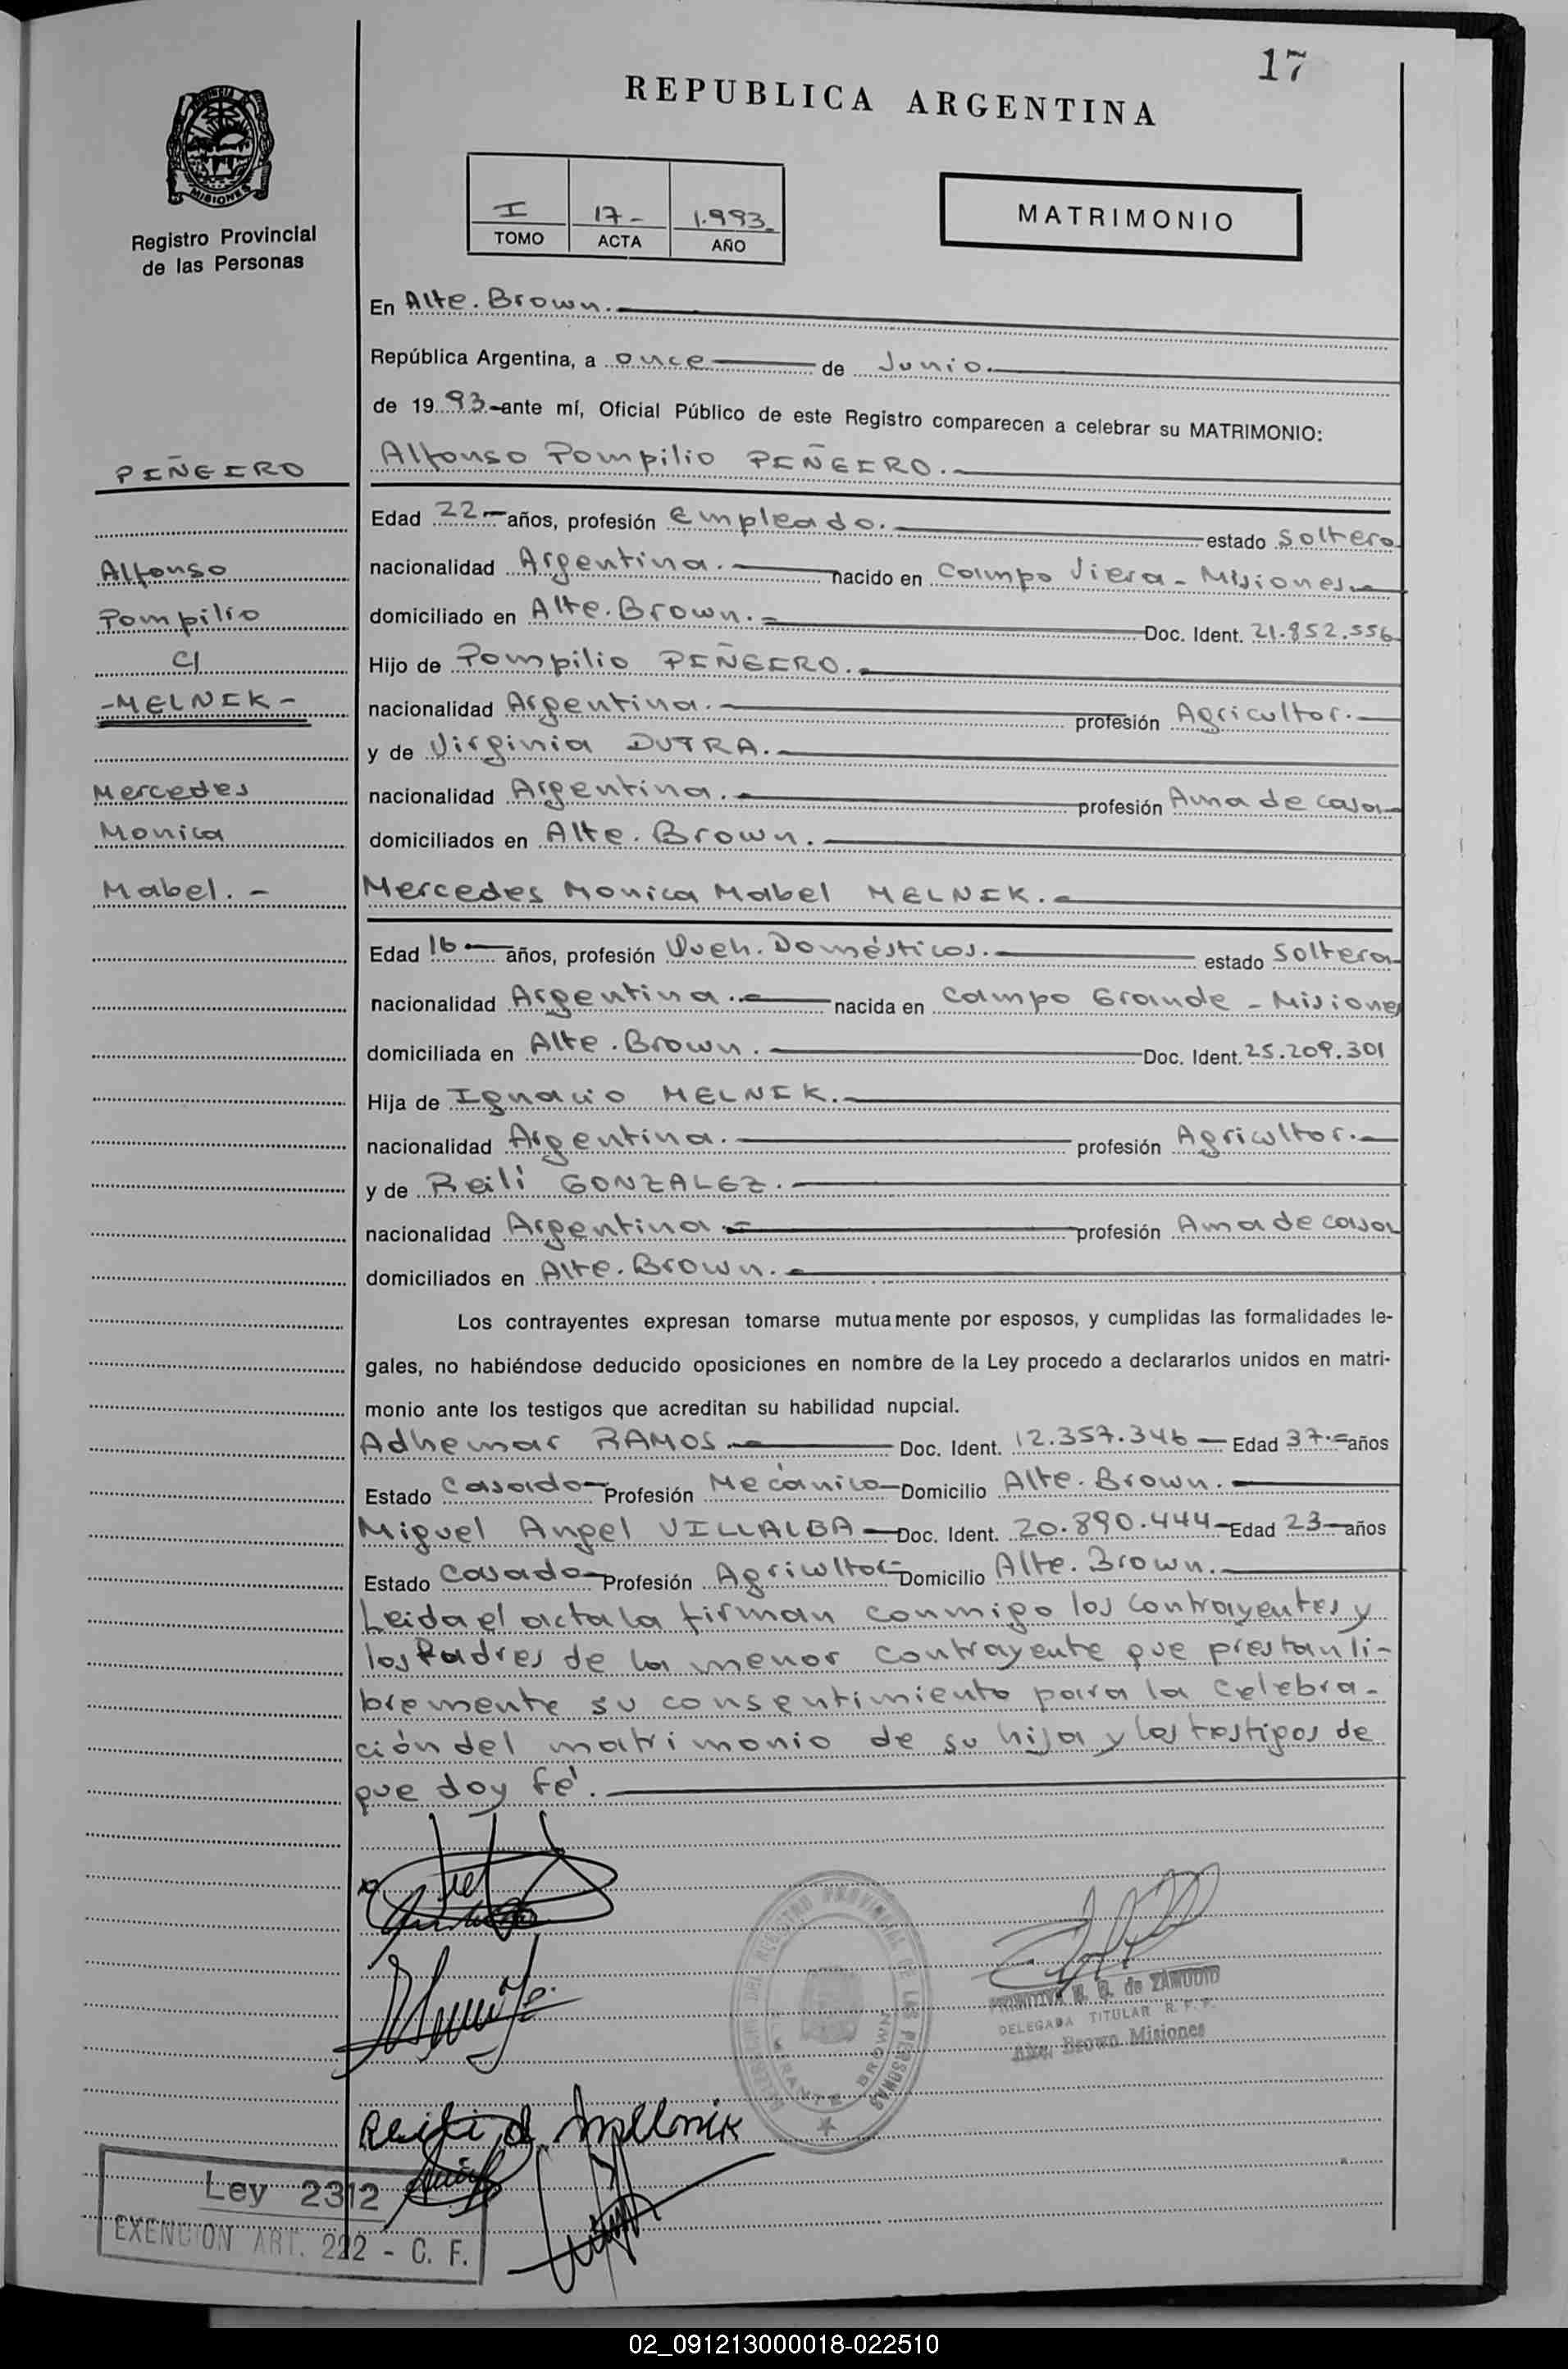 17
REPUBLICA ARGENTINA
PROVINCIA DE
MISIONES
Registro Provincial
de las Personas
I 17- 1.993.
TOMO ACTA AÑO
MATRIMONIO
En Alte. Brown.
República Argentina, a once de Junio.
de 1993 ante mí, Oficial Público de este Registro comparecen a celebrar su MATRIMONIO:
PIÑEIRO
Alfonso Pompilio PIÑEIRO.
Edad 22 años, profesión empleado. estado soltero
Alfonso
nacionalidad Argentina. nacido en Campo Viera - Misiones
Pompilio
domiciliado en Alte. Brown. Doc. Ident. 21.852.556
C/
Hijo de Pompilio PIÑEIRO.
-MELNIK-
nacionalidad Argentina. profesión Agricultor.
y de Virginia DUTRA.
Mercedes
nacionalidad Argentina. profesión Ama de casa
Monica
domiciliados en Alte. Brown.
Mabel. -
Mercedes Monica Mabel MELNIK.
Edad 16 años, profesión Queh. Domésticos. estado soltera
nacionalidad Argentina. nacida en Campo Grande - Misiones
domiciliada en Alte. Brown. Doc. Ident. 25.209.301
Hija de Ignacio MELNIK.
nacionalidad Argentina. profesión Agricultor.
y de Reilí GONZALEZ.
nacionalidad Argentina profesión Ama de casa
domiciliados en Alte. Brown.
Los contrayentes expresan tomarse mutuamente por esposos, y cumplidas las formalidades le-
gales, no habiéndose deducido oposiciones en nombre de la Ley procedo a declararlos unidos en matri-
monio ante los testigos que acreditan su habilidad nupcial.
Adhemar RAMOS Doc. Ident. 12.357.346 Edad 37 años
Estado Casado Profesión Mecánico Domicilio Alte. Brown.
Miguel Angel VILLALBA Doc. Ident. 20.890.444 Edad 23 años
Estado Casado Profesión Agricultor Domicilio Alte. Brown.
Leida el acta la firman conmigo los contrayentes y
los Padres de la menor contrayente que prestan li-
bremente su consentimiento para la celebra-
ción del matrimonio de su hija y los testigos de
que doy fé.
REGISTRO PROVINCIAL DE LAS PERSONAS
BROWN
de ZAMUDIO
DELEGADA TITULAR R.P.P.
Alte. Brown Misiones
Ley 2312
EXENCION ART. 222 - C. F.
02_091213000018-022510